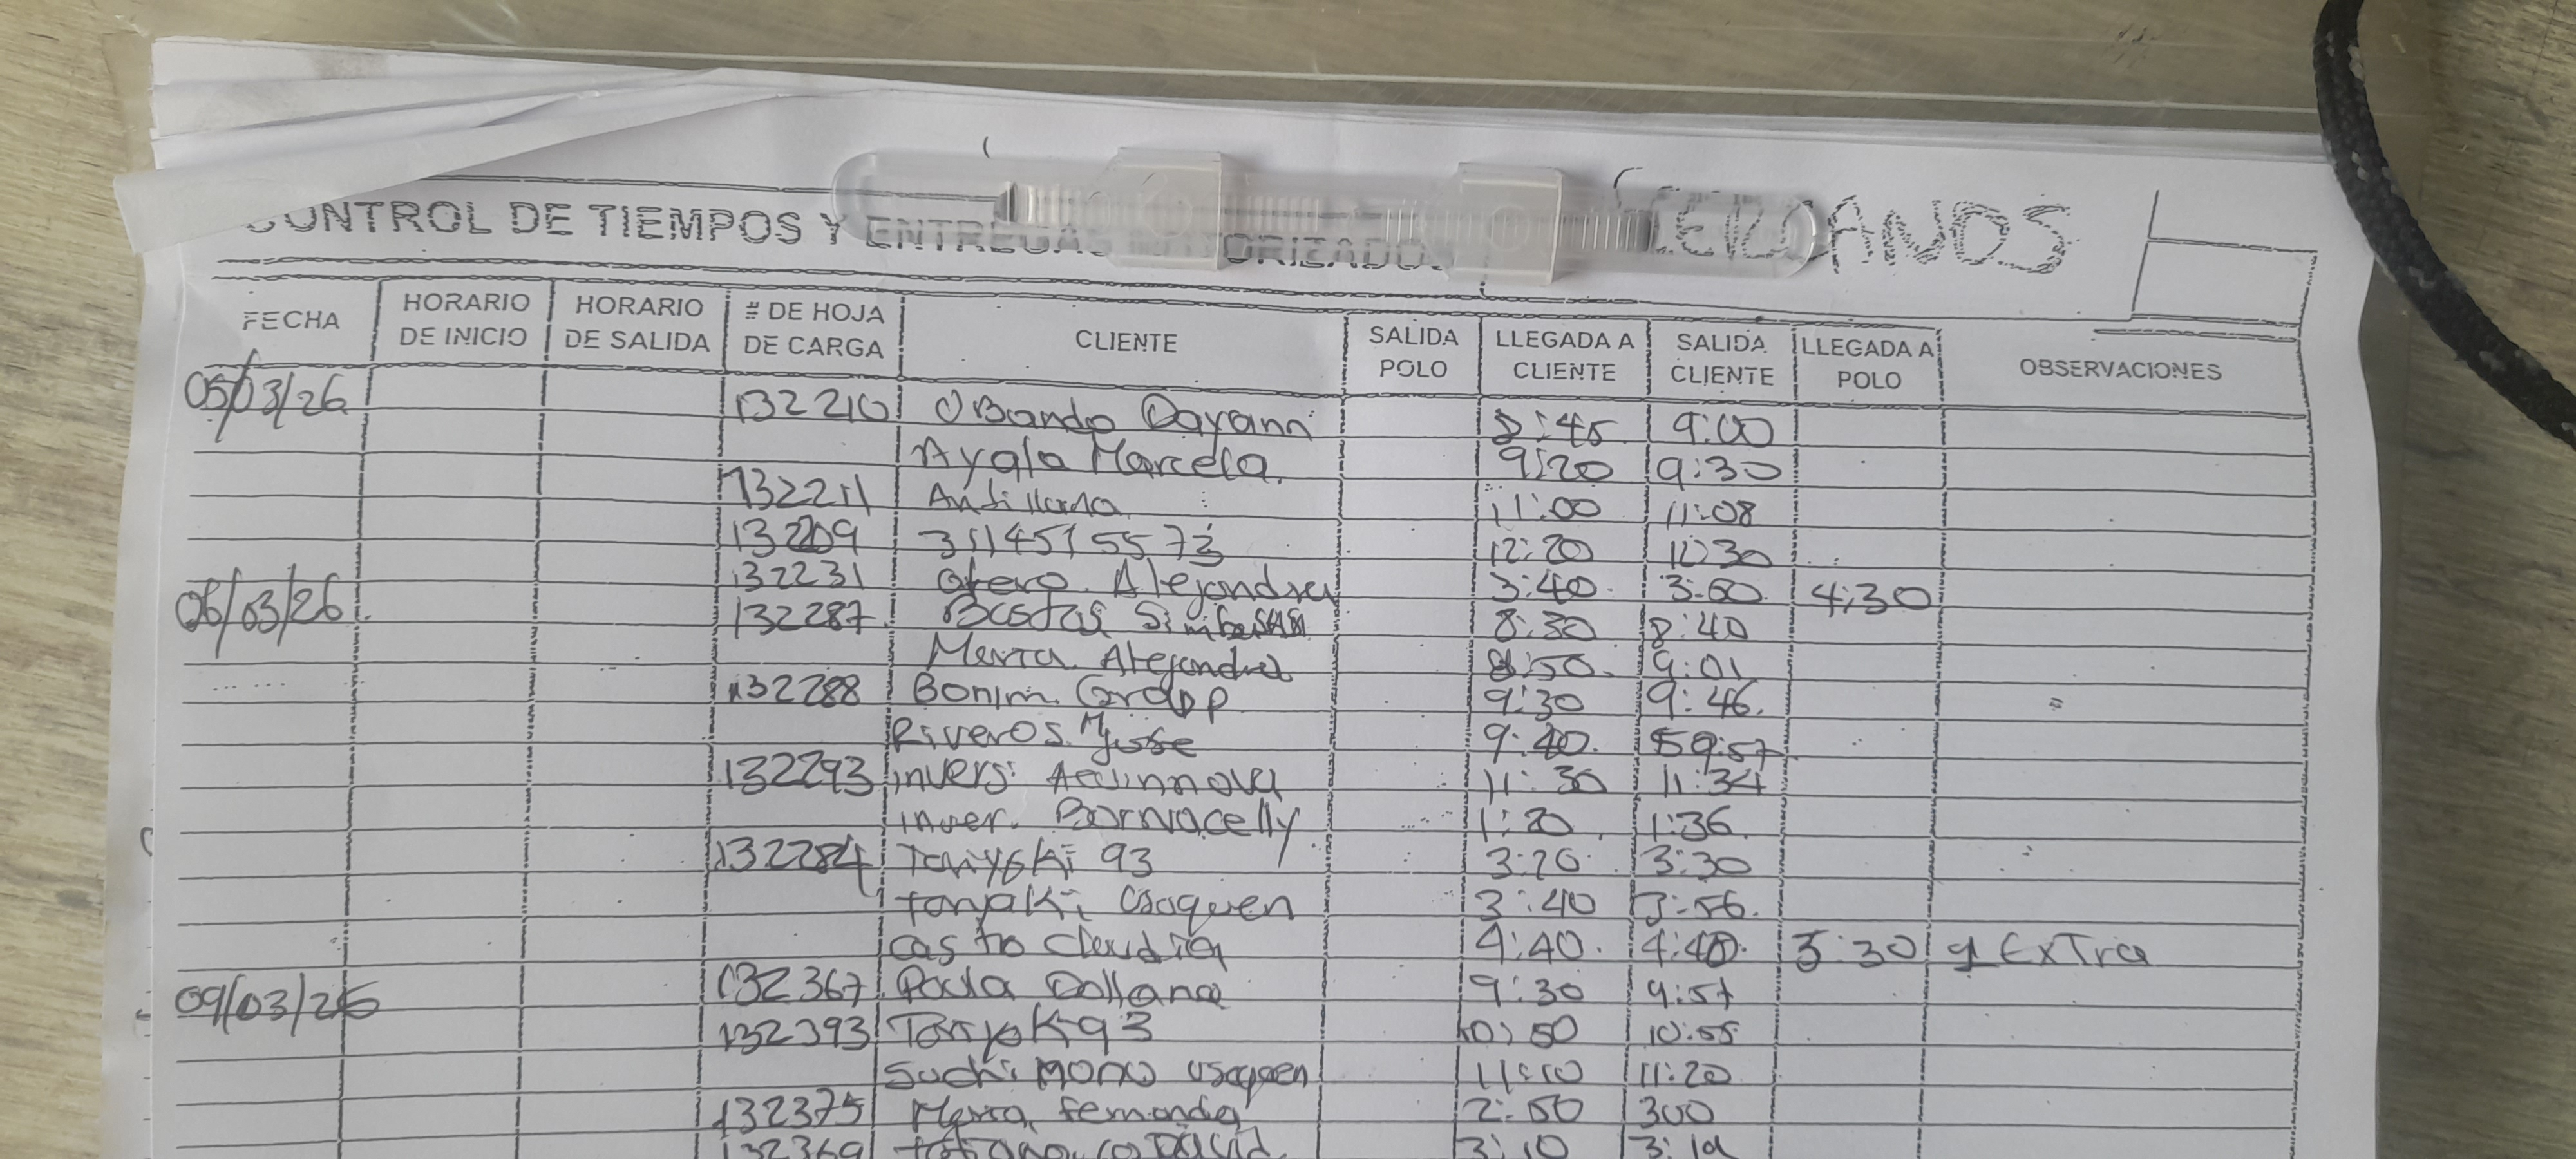 CONTROL DE TIEMPOS Y ENTREGAS
FECHA HORARIO DE INICIO HORARIO DE SALIDA # DE HOJA DE CARGA CLIENTE SALIDA POLO LLEGADA A CLIENTE SALIDA CLIENTE LLEGADA A POLO OBSERVACIONES
05/03/26 132210 Obando Dayann 8:45 9:00
Ayala Marcela 9:20 9:30
132211 Antillana 11:00 11:08
132209 3114515573 12:20 12:30
132231 Otero. Alejandra 3:40 3:50 4:30
06/03/26 132287 8:30 8:40
Alejandra 8:50 9:01
132288 Bonim. Group 9:30 9:46
Riveros 9:40 9:57
132293 invers. 11:30 11:34
inver. 1:20 1:36
132284 93 3:20 3:30
3:40 3:56
castro Claudia 4:40 4:48 5:30 1 ExTra
09/03/26 132367 Paola 9:30 9:57
132393 93 10:50 10:55
Suchi mono usaquen 11:10 11:20
132375 fernanda 2:50 300
132369 3:10